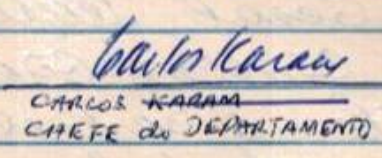 Carlos Karam
CARLOS KARAM
CHEFE do DEPARTAMENTO